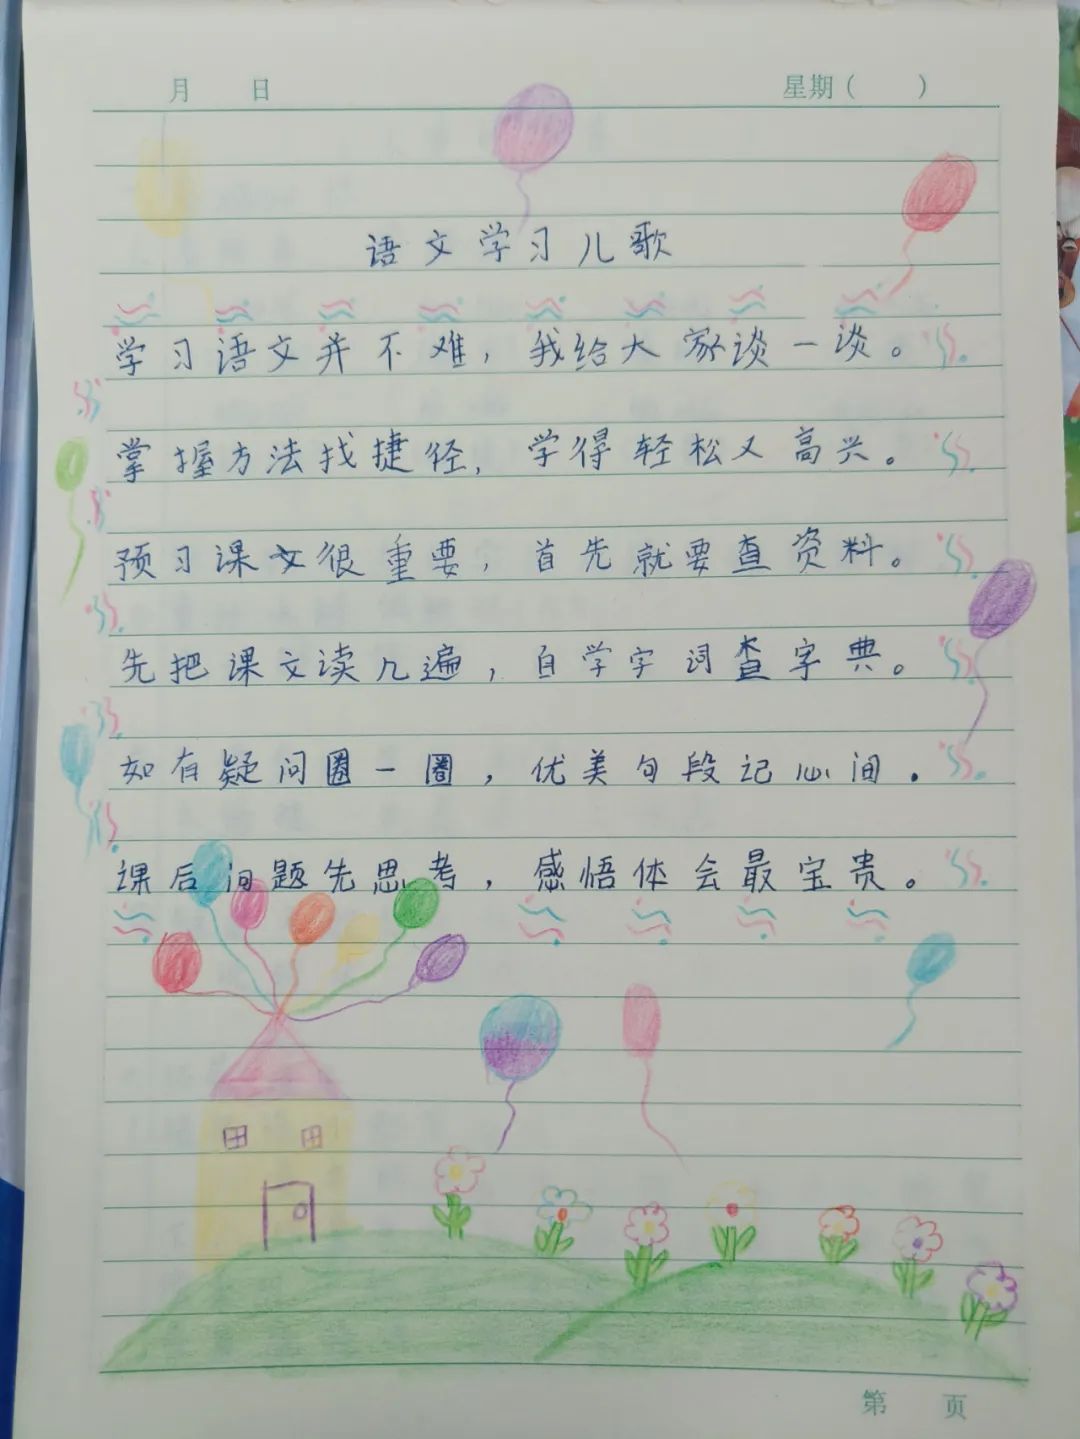 月 日 星期( )
语文学习儿歌
学习语文并不难,我给大家谈一谈。
掌握方法找捷径,学得轻松又高兴。
预习课文很重要,首先就要查资料。
先把课文读几遍,自学字词查字典。
如有疑问圈一圈,优美句段记心间.
课后问题先思考,感悟体会最宝贵。
第 页